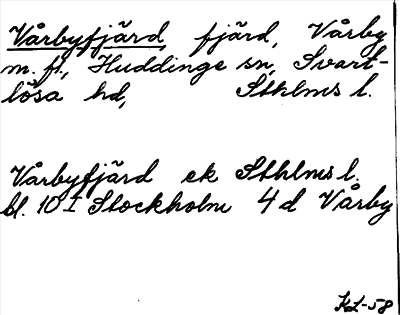 Vårbyfjärd, fjärd, Vårby
m. fl., Huddinge sn, Svart-
lösa hd, Sthlms l.
Vårbyfjärd ek Sthlms l.
bl. 10 I Stockholm 4 d Vårby
KL-58